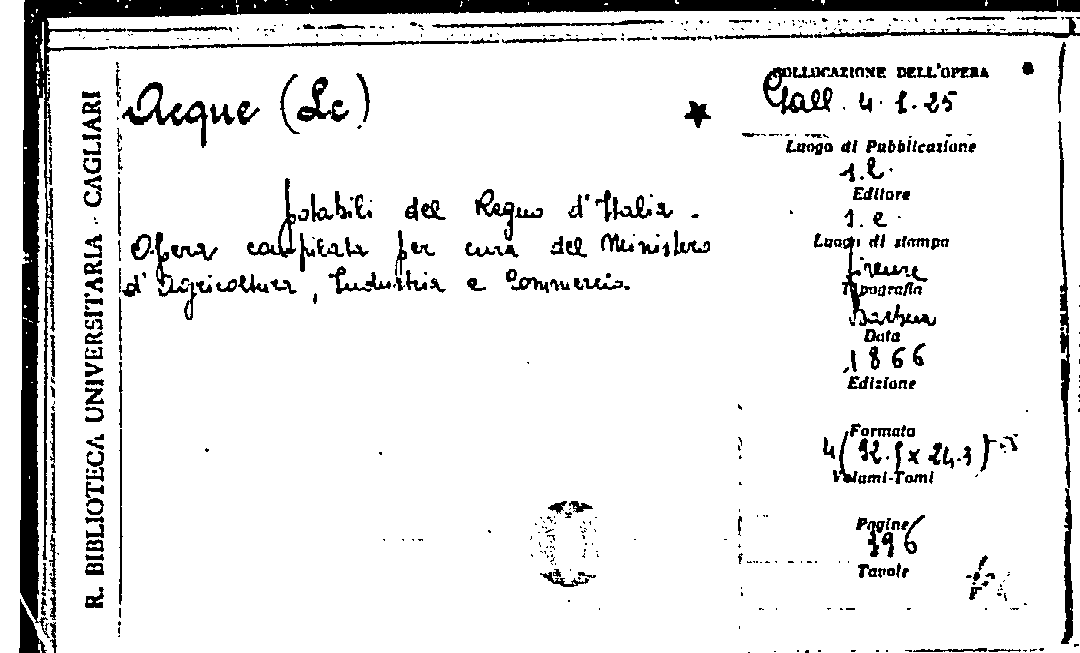 R. BIBLIOTECA UNIVERSITARIA - CAGLIARI
Acque (Le)
potabili del Regno d'Italia.
Opera compilata per cura del Ministero
d'Agricoltura, Industria e Commercio.
COLLOCAZIONE DELL'OPERA
Gall. 4. 1. 25
Luogo di Pubblicazione
s.l.
Editore
s.e.
Luogo di stampa
Firenze
Tipografia
Barbera
Data
1866
Edizione
Formato
4 (32.5 x 24.3)
Volumi-Tomi
Pagine
396
Tavole